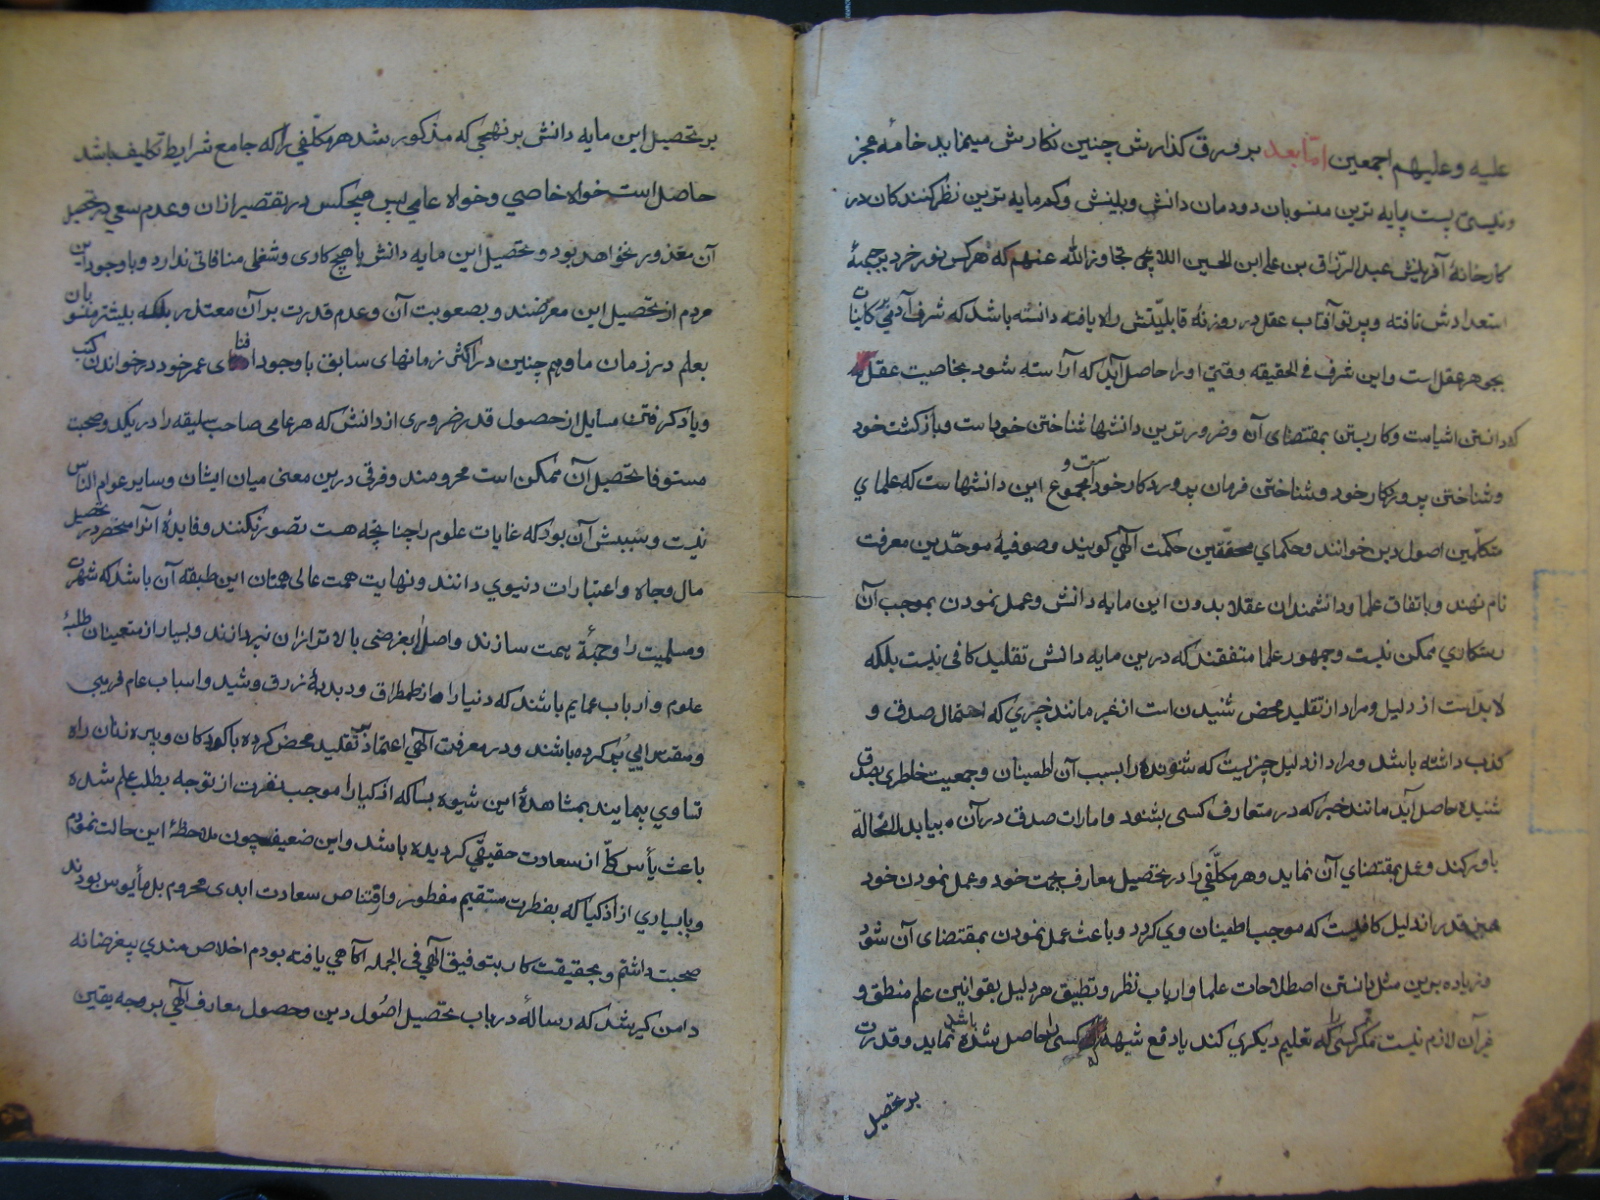 علیه و علیهم اجمعین اما بعد بر ورق کذارش چنین نکارش مینماید خامه عجز
و نیستی پست پایه ترین منسوبان دودمان دانش و بینش و کم مایه ترین نظر کنندکان در
کارخانهٔ آفرینش عبد الرزاق بن علی ابن الحسین اللاهجی تجاوز الله عنهم که هر کس نور خرد بر جبههٔ
استعدادش تافته و پرتو آفتاب عقل در روزنهٔ قابلیّتش راه یافته دانسته باشد که شرف آدمی بر کاینات
بجوهر عقل است و این شرف فی الحقیقه وقتی او را حاصل آید که آراسته شود بخاصیت عقل
که دانستن اشیاست و کار بستن بمقتضای آن و ضرورترین دانشها شناختن خود است و بازکشت خود
و شناختن پروردکار خود و شناختن فرمان پروردکار خود است و مجموع این دانشها است که علمای
متکلّمین اصول دین خوانند و حکمای محققین حکمت الهی کویند و صوفیهٔ موحّدین معرفت
نام نهند و باتفاق علما و دانشمندان عقلا بدون این مایه دانش و عمل نمودن بموجب آن
رستکاری ممکن نیست و جمهور علما متفقند که درین مایه دانش تقلید کافی نیست بلکه
لابدّ است از دلیل و مراد از تقلید محض شنیدن است از غیر مانند خبری که احتمال صدق و
کذب داشته باشد و مراد از دلیل چیزیست که شنونده را بسبب آن اطمینان و جمعیت خاطری بصدق
شنیده حاصل آید مانند خبر که در متعارف کسی بشنود و امارات صدق در آن بیابد لامحالة
باور کند و عمل بمقتضای آن نماید و هر مکلّفی را در تحصیل معارف بجهت خود و عمل نمودن خود
همین قدر از دلیل کافیست که موجب اطمینان وی کردد و باعث عمل نمودن بمقتضای آن شود
و زیاده برین مثل دانستن اصطلاحات علما و ارباب نظر و تطبیق هر دلیل بقوانین علم منطق و
غیر آن لازم نیست مکر کسی را که تعلیم دیکری کند یا دفع شبهه کسی را حاصل شده باشد نماید و قدرت
بر تحصیل
بر تحصیل این مایه دانش بر نهجی که مذکور شد هر مکلّفی را که جامع شرایط تکلیف باشد
حاصل است خواه خاصی و خواه عامی پس هیچکس در تقصیر از ان و عدم سعی در تحصیل
آن معذور نخواهد بود و تحصیل این مایه دانش با هیچ کاری و شغلی منافاتی ندارد و با وجود این
مردم از تحصیل این معرضند و بصعوبت آن و عدم قدرت بر آن معتذر بلکه بیشتر منسوبان
بعلم در زمان ما و هم چنین در اکثر زمانهای سابق با وجود افنای عمر خود در خواندن کتب
و یاد کرفتن مسایل از حصول قدر ضروری از دانش که هر عامی صاحب سلیقه را در یکدو صحبت
مستوفا تحصیل آن ممکن است محرومند و فرقی درین معنی میان ایشان و سایر عوام الناس
نیست و سببش آن بود که غایات علوم را چنانچه هست تصور نکنند و فایدهٔ آنرا منحصر در تحصیل
مال و جاه و اعتبارات دنیوی دانند و نهایت همت عالی همتان این طبقه آن باشد که شهرت
و مسلمیت را وجههٔ همت سازند و اصلا بغرضی بالاتر از ان نپردازند و بسیار از متعینان طلبهٔ
علوم و ارباب عمایم باشند که دنیا را از طمطراق و دبدبهٔ زرق و شید و اسباب عام فریبی
و مقتدایی پر کرده باشند و در معرفت الهی اعتماد بر تقلید محض کرده با کودکان و پیره زنان راه
تساوی پیمایند بمشاهدهٔ این شیوه بسا که اذکیا را موجب نفرت از توجه بطلب علم شده
باعث یأس کلّی از سعادت حقیقی کردیده باشد و این ضعیف چون ملاحظهٔ این حالت نمودم
و با بسیاری از اذکیا که بفطرت مستقیم مفطور و از اقتناص سعادت ابدی محروم بل مأیوس بودند
صحبت داشتم و بحقیقت کار بتوفیق الهی فی الجمله آکاهی یافته بودم اخلاص مندی بیغرضانه
دامن کیر شد که رسالهٔ در باب تحصیل اصُول دین و حصول معارف الهی بر وجه یقین